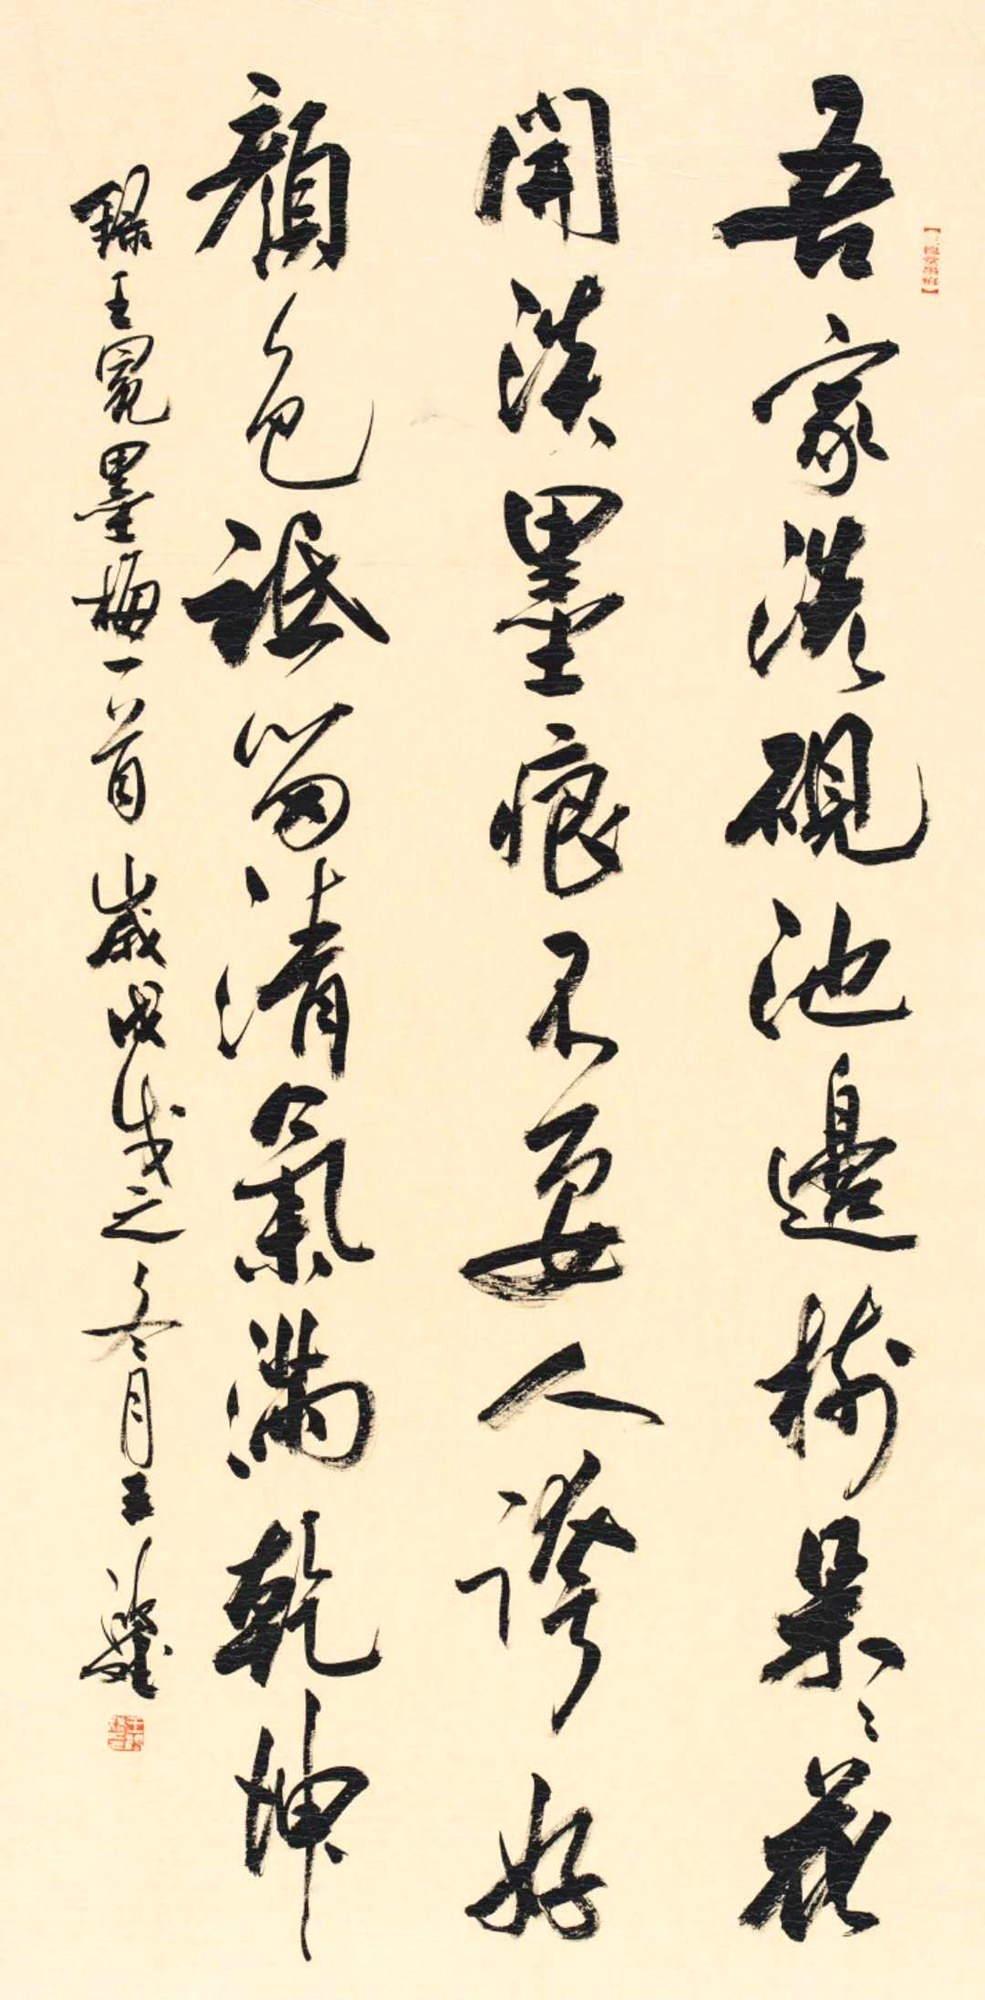 吾家洗硯池邊樹景〻花
開淡墨痕不要人誇好
顏色祇留清氣滿乾坤
録王冕墨梅一首歲次戊戌之冬月王